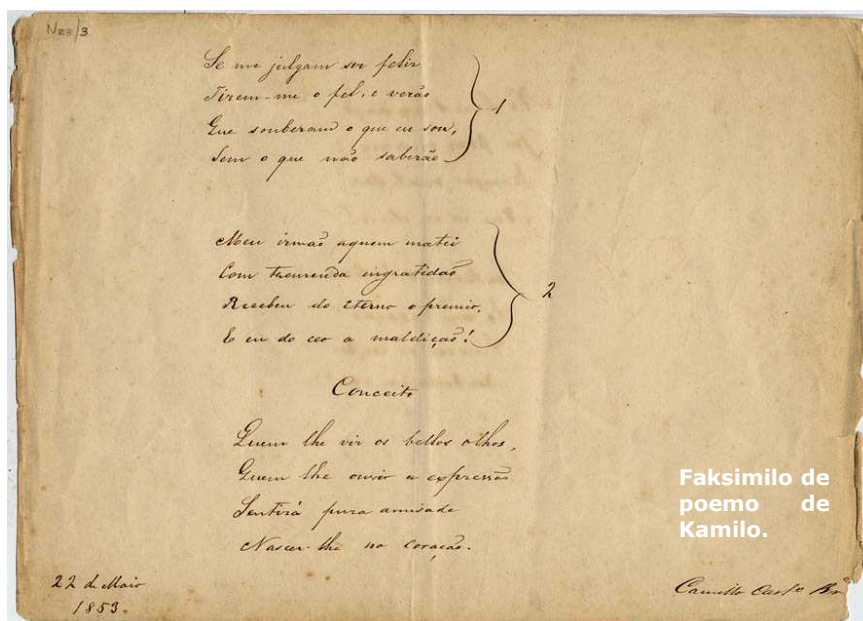 N23/3
Se me julgam ser feliz
Tirem-me o fel, e verão
Que souberam o que eu sou,
Sem o que não saberão
1
Meu irmão aquem matei
Com tremenda ingratidão
Recebeu do eterno o premio,
E eu do ceo a maldição!
2
Conceito
Quem lhe vir os bellos olhos,
Quem lhe ouvir a expressão
Sentirá pura amisade
Nascer-lhe no coração.
Faksimilo de
poemo de
Kamilo.
22 de Maio
1853.
Camillo Cast.º Br.º